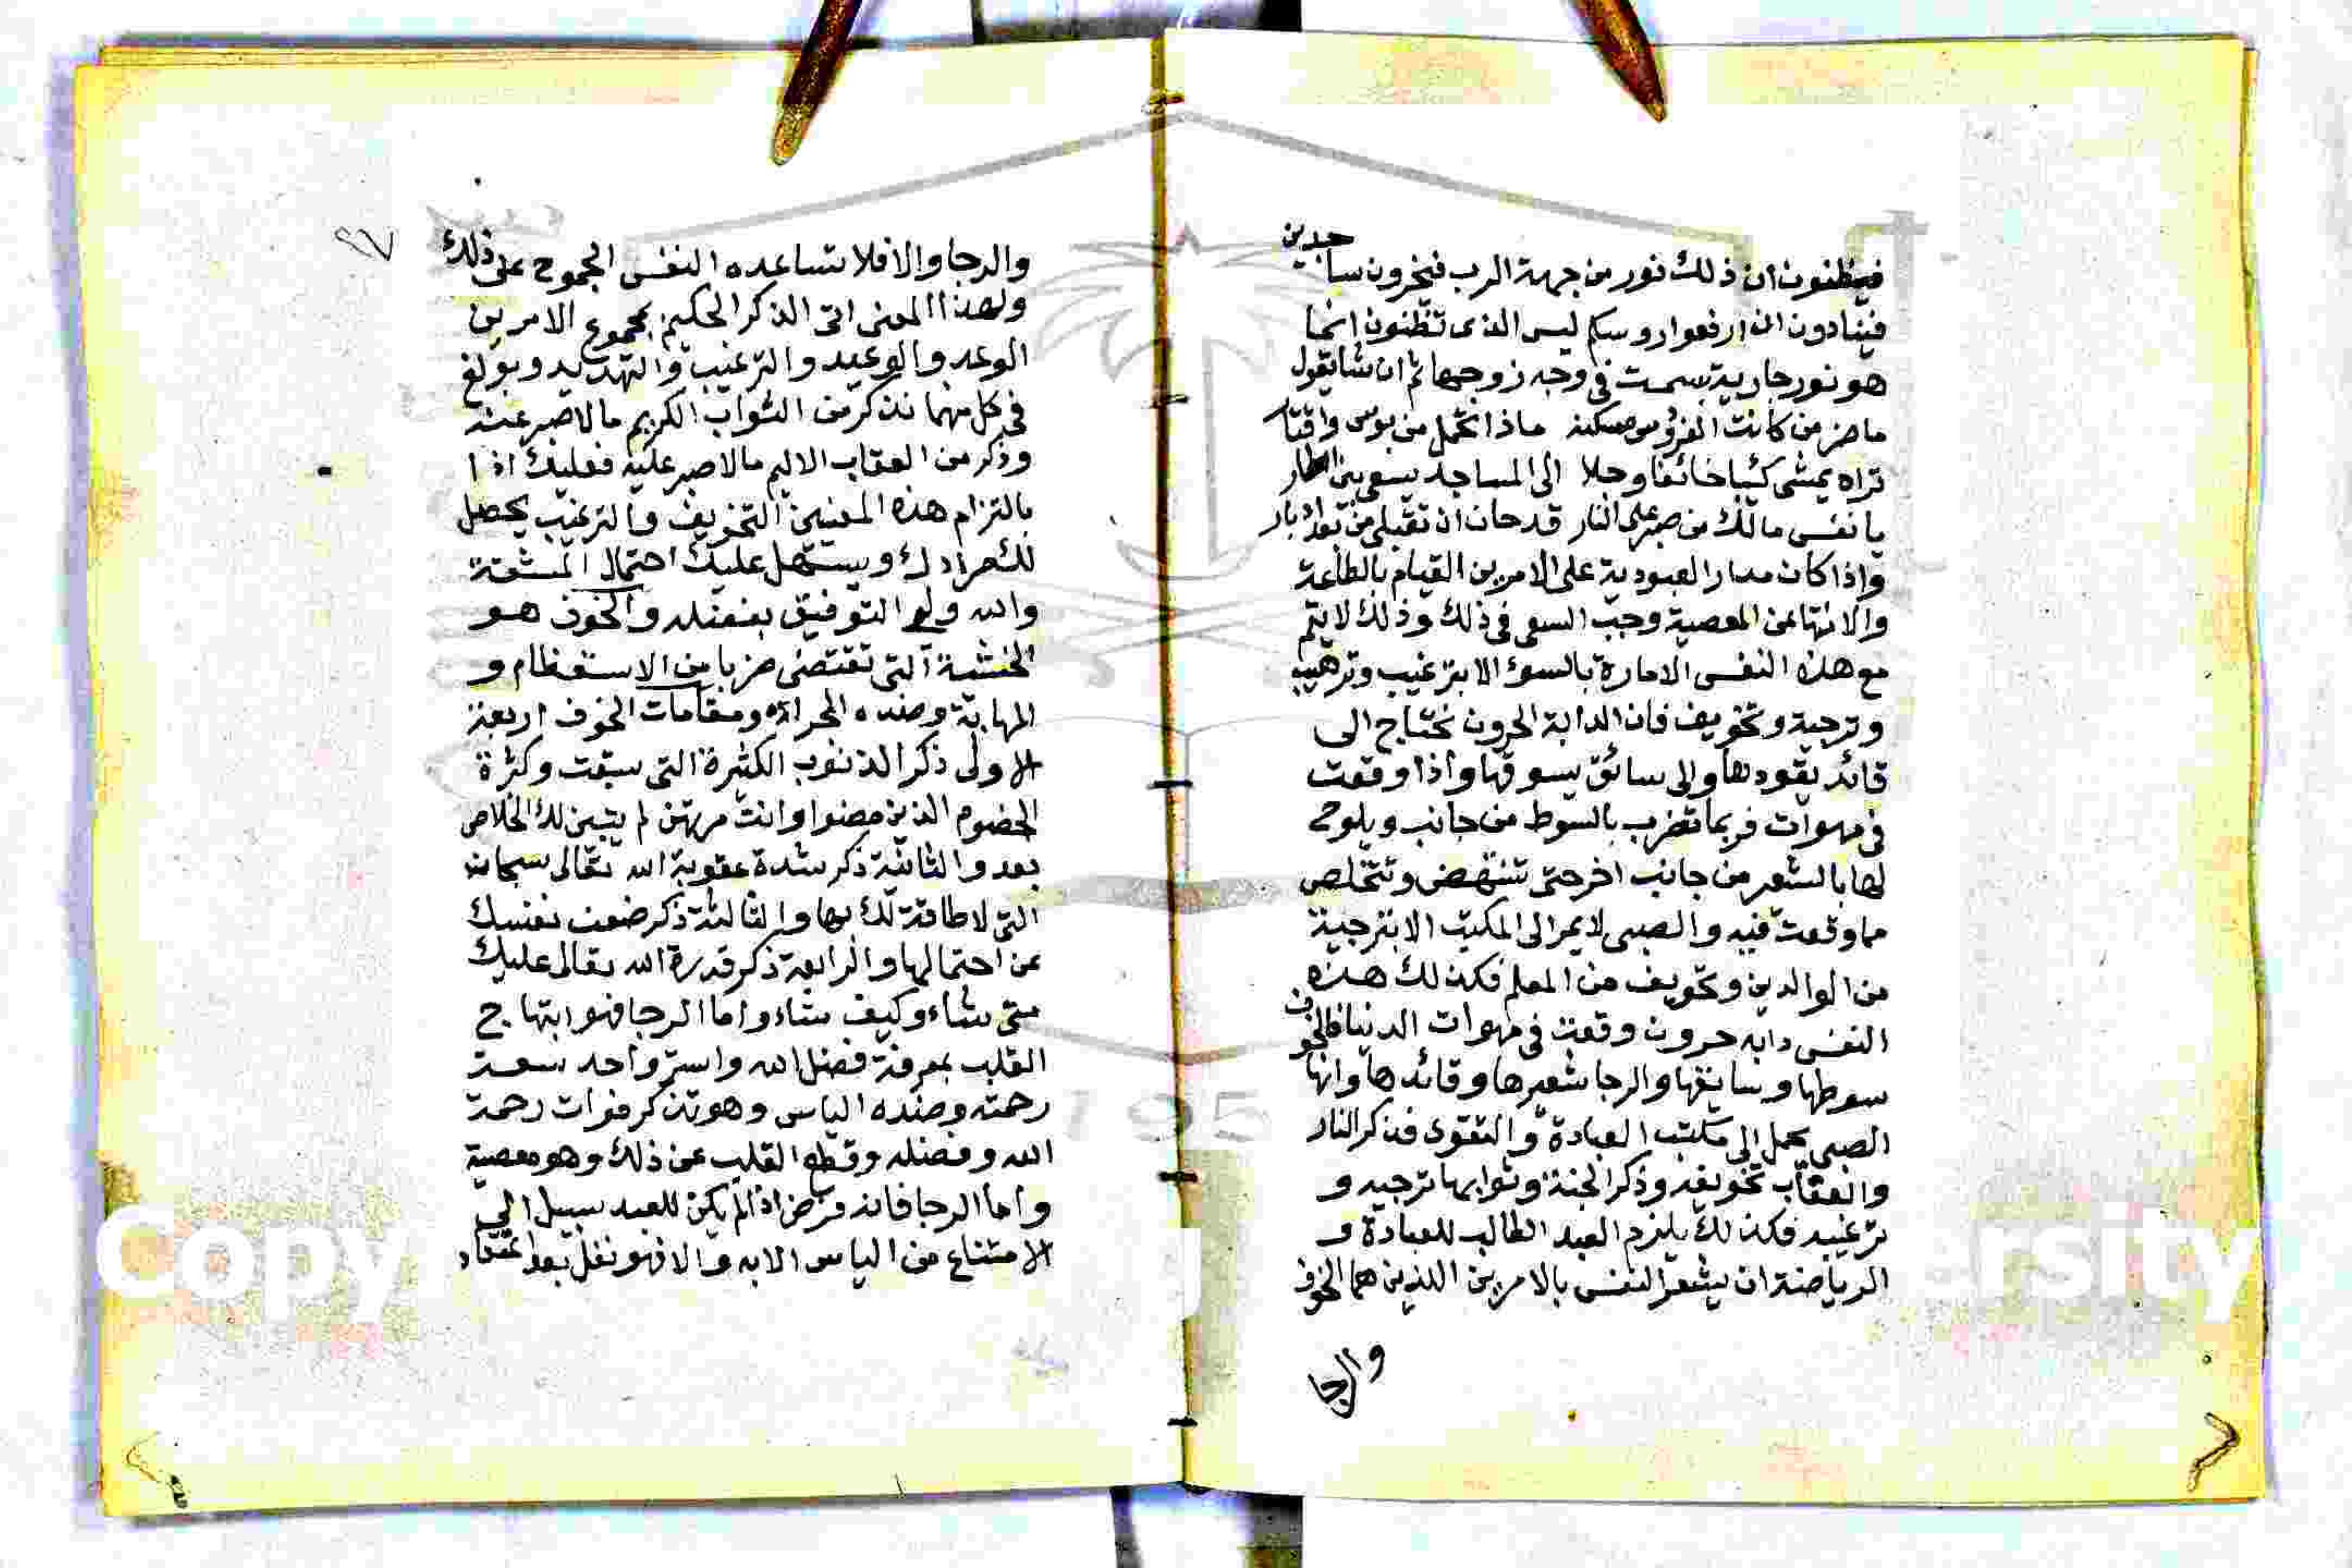 فيظنون ان ذلك نور من جهة الرب فيخرون ساجدين
فينادون ان ارفعوا روسكم ليس الذى تظنون انما
هو نور جارية بسمت فى وجه زوجها ثم انشا يقول
ماضر من كانت الفردوس مسكنه ماذا تحمل من بوس واقتار
تراه يمشى كئيبا خائفا وجلا الى المساجد يسعى بين اطمار
يا نفس مالك من صبر على النار قد حان ان تقبلى من بعد ادبار
واذا كان مدار العبودية على الامرين القيام بالطاعة
والانتها عن المعصية وجب السعى فى ذلك وذلك لا يتم
مع هذه النفس الامارة بالسوء الا بترغيب وترهيب
وترجية وتخويف فان الدابة الحرون تحتاج الى
قائد يقودها والى سائق يسوقها واذا وقعت
فى مهوات فربما تضرب بالسوط من جانب ويلوح
لها بالشعير من جانب اخر حتى تنهض وتتخلص
مما وقعت فيه والصبى لا يمر الى المكتب الا بترجية
من الوالدين وتخويف من المعلم فكذلك هذه
النفس دابه حرون وقعت فى مهوات الدنيا فالخوف
سوطها وسايقها والرجا شعيرها وقائدها وانها
الصبى يحمل الى مكتب العبادة والتقوى فذكر النار
والعقاب تخويفه وذكر الجنة وثوابها ترجيه و
ترغيبه فكذلك يلزم العبد الطالب للعبادة و
الرياضة ان يشعر النفس بالامرين الذين هما الخوف
والرجا
٢٧
والرجا والا فلا تساعده النفس الجموح على ذلك
ولهذا المعنى اتى الذكر الحكيم بمجموع الامرين
الوعد والوعيد والترغيب والتهديد وبولغ
فى كل مهما نذكر من الثواب الكريم مالاصبر عنه
وذكر من العقاب الاليم مالاصبر عليه فعليك اذا
بالتزام هذه المعنيين التخويف والترغيب يحصل
لك مرادك ويسهل عليك احتمال المشقة
والله ولى التوفيق بفضله والخوف هو
الخشية التى تقتضى ضربا من الاستعظام و
المهابة وضده الجراة ومقامات الخوف اربعة
الاولى ذكر الذنوب الكثيرة التى سبقت وكثرة
الخصوم الذين مضوا وانت مرتهن لم يتبين لك الخلاص
بعد والثانية ذكر شدة عقوبة الله تعالى سبحانه
التى لا طاقة لك بها والثالثة ذكر ضعف نفسك
عن احتمالها والرابعة ذكر قدرة الله تعالى عليك
متى شاء وكيف شاء واما الرجا فهو ابتهاج
القلب بمعرفة فضل الله واسترواحه سعة
رحمته وضده الياس وهو تذكر فوات رحمة
الله وفضله وقطع القلب عن ذلك وهو معصية
واما الرجا فانه فرض اذا لم يكن للعبد سبيل الى
الامتناع من الياس الا به والا فهو نفل بعد اعتقاد
1957
Copy
rsity